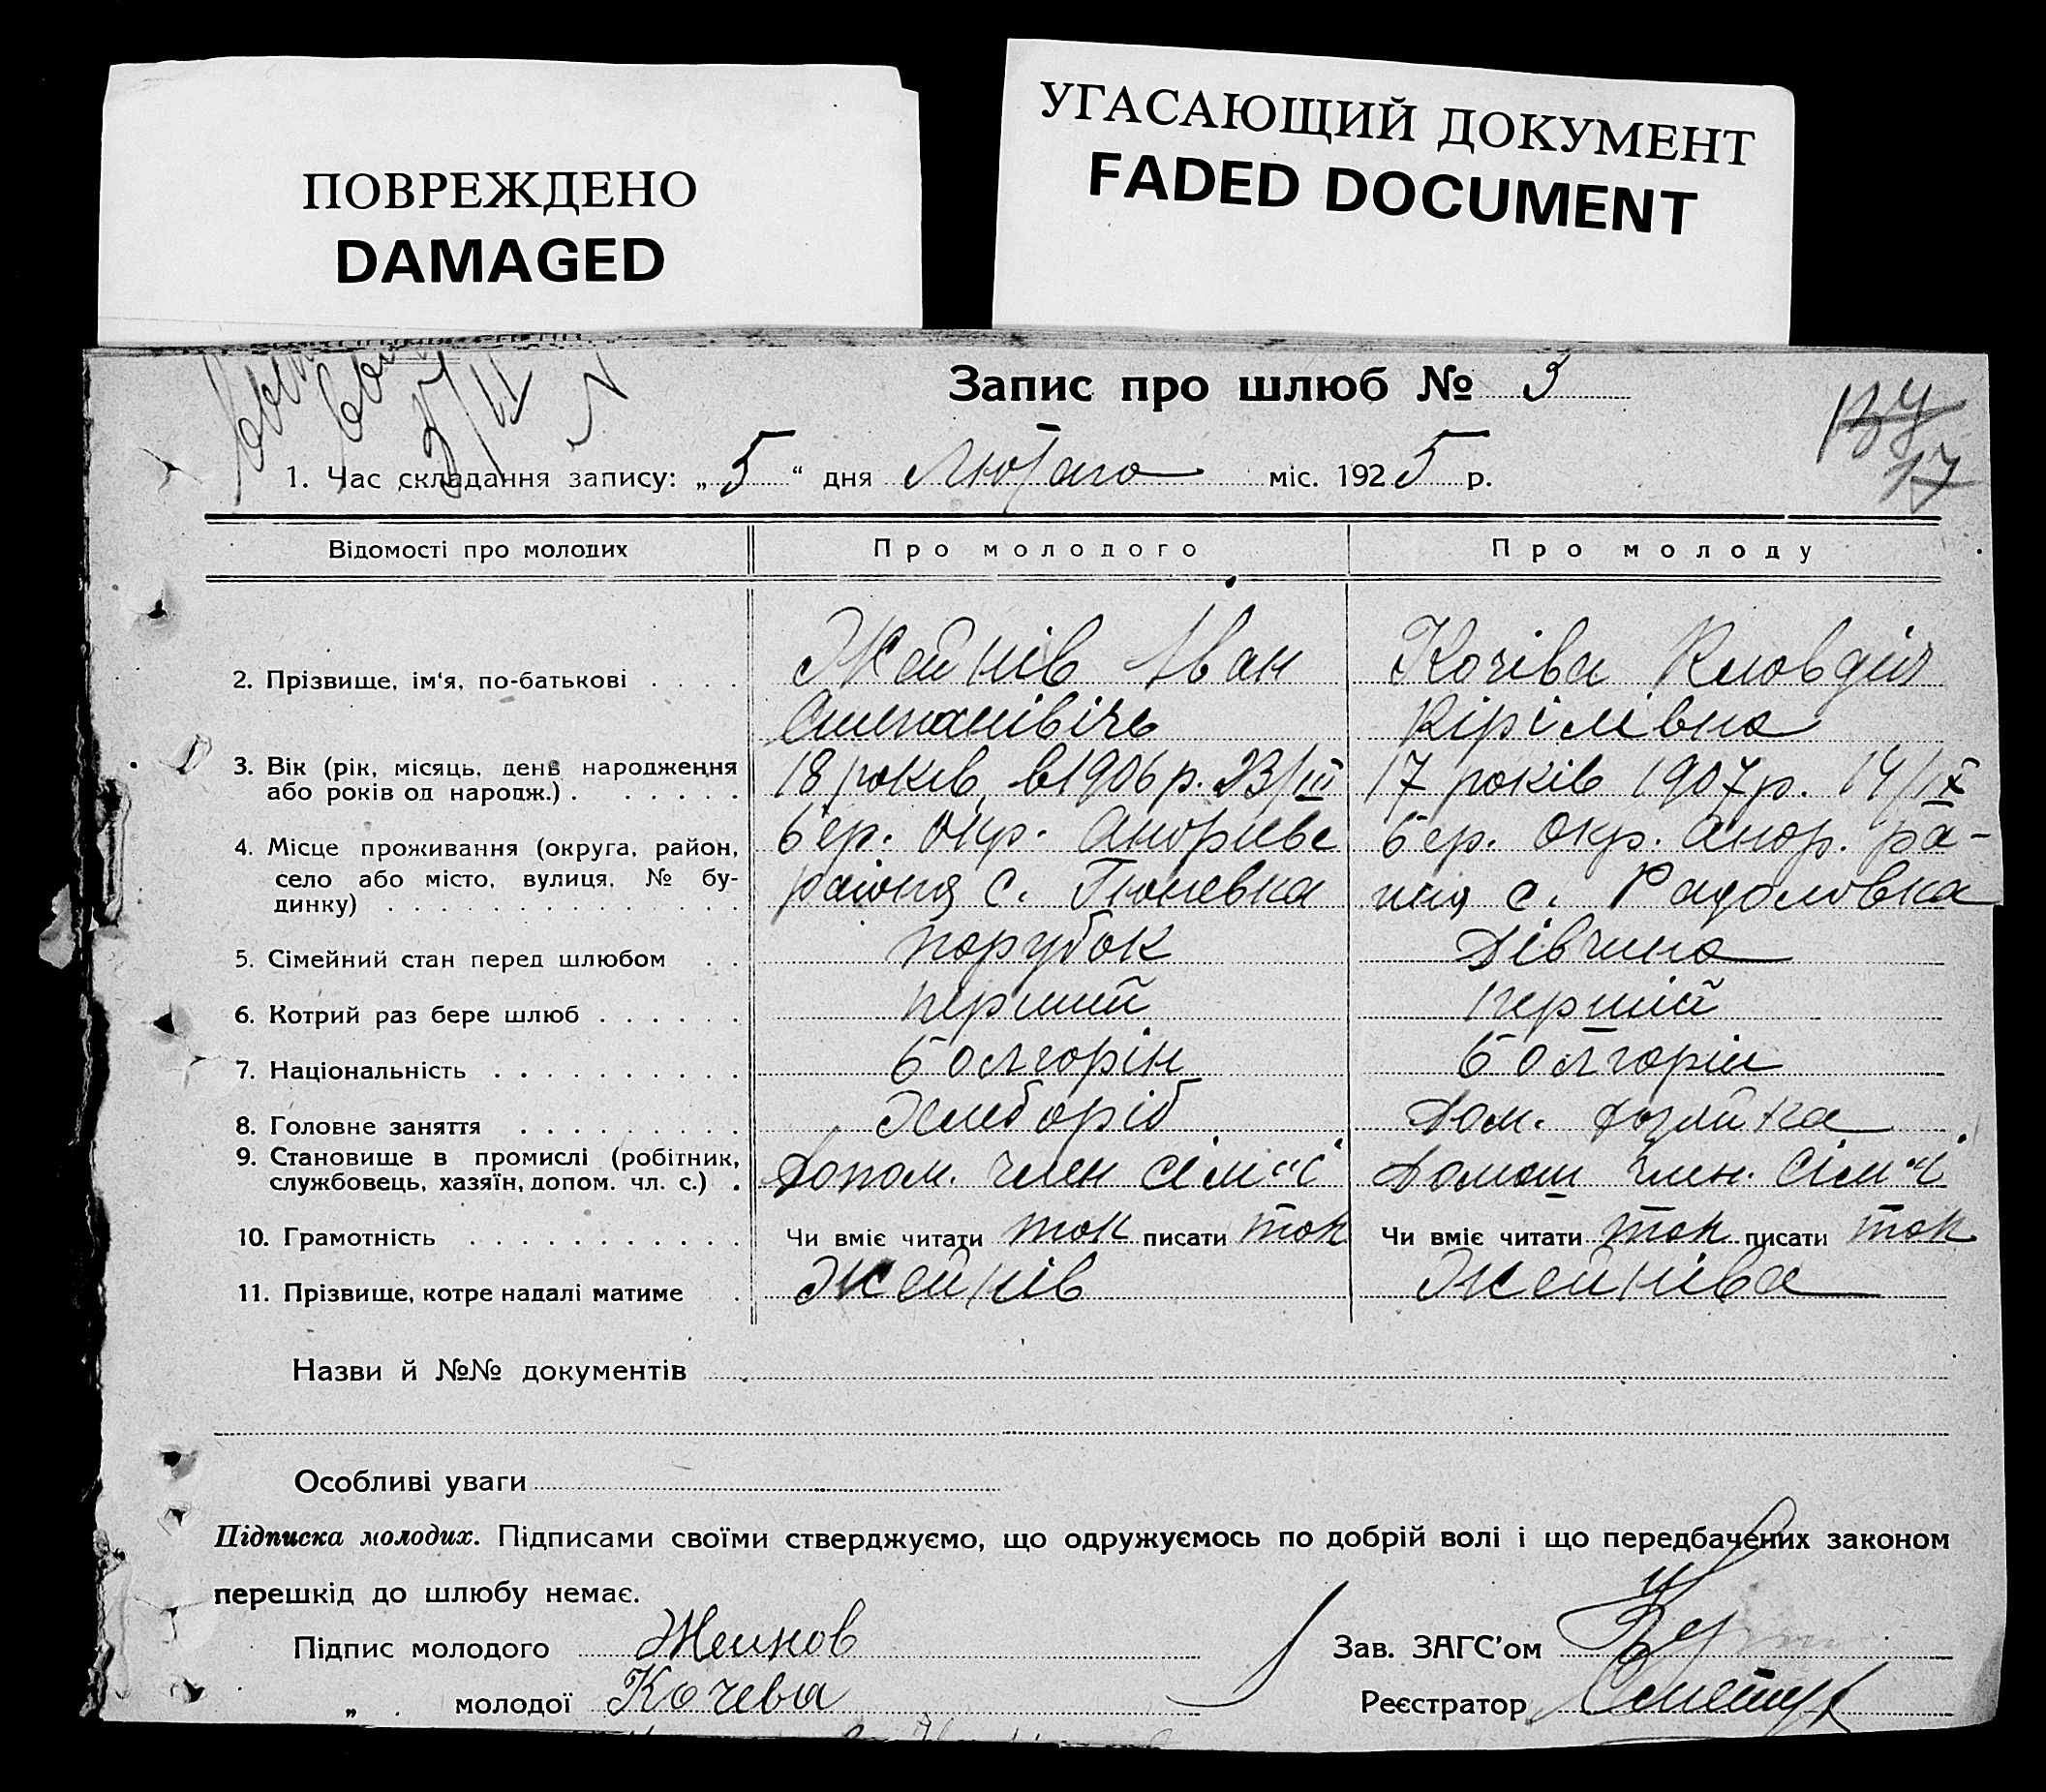 ПОВРЕЖДЕНО
DAMAGED
УГАСАЮЩИЙ ДОКУМЕНТ
FADED DOCUMENT
Запис про шлюб № 3
137
17
1. Час складання запису: „ 5 “ дня Лютого міс. 1925 р.
Відомості про молодих
Про молодого
Про молоду
2. Прізвище, ім'я, по-батькові . . . .
Жейнів Іван
Степанівічь
Кочіва Кловдія
Кірілівна
3. Вік (рік, місяць, день народження
або років од народж.) . . . . . .
18 років, в 1906 р. 23/III
17 років 1907 р. 14/IX
4. Місце проживання (округа, район,
село або місто, вулиця, № бу-
динку) . . . . . . . . . . . . . .
бер. окр. Андриевс
района с. Гюневка
бер. окр. Андр. ра-
йна с. Радоловка
5. Сімейний стан перед шлюбом . .
порубок
дівчина
6. Котрий раз бере шлюб . . . . . .
перший
першій
7. Національність . . . . . . . . . .
болгорін
болгорін
8. Головне заняття . . . . . . . . .
Хлеборіб
Дом. хозяйка
9. Становище в промислі (робітник,
службовець, хазяїн, допом. чл. с.) .
Допом. член сім"ї
член. сім"ї
10. Грамотність . . . . . . . . . . .
Чи вміє читати ток писати ток
Чи вміє читати ток писати ток
11. Прізвище, котре надалі матиме .
Жейнів
Жейніва
Назви й №№ документів
Особливі уваги
Підписка молодих. Підписами своїми стверджуємо, що одружуємось по добрій волі і що передбачених законом
перешкід до шлюбу немає.
Підпис молодого Жеинов
Зав. ЗАГС'ом
„ . молодої Кочева
Реєстратор